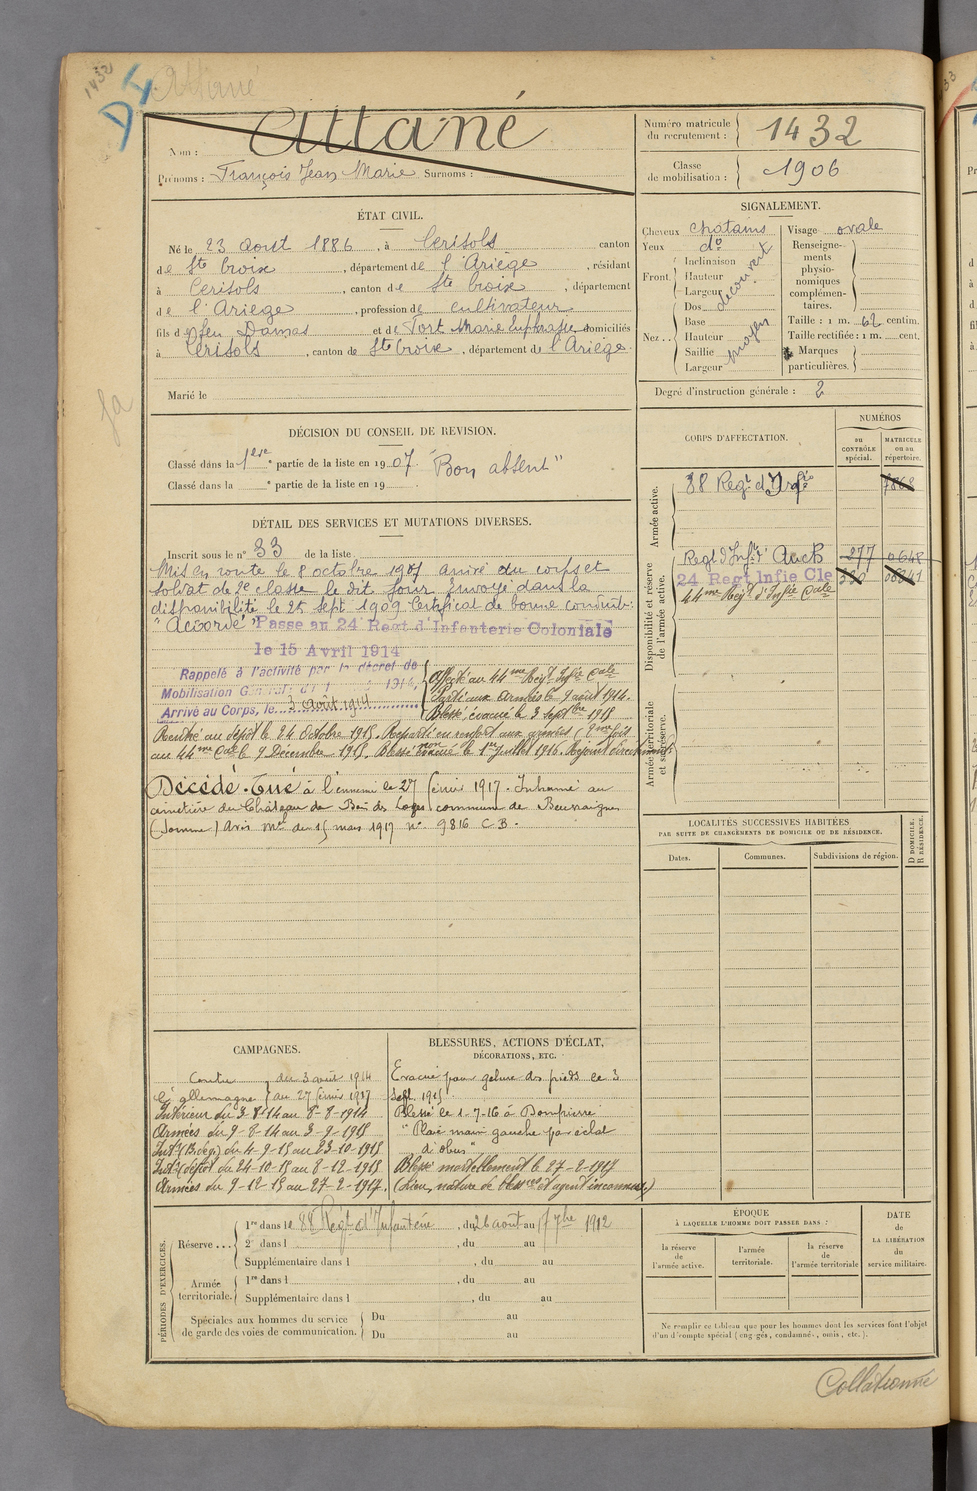 1432
D4
Attané
Nom : Attané
Prénoms : François Jean Marie Surnoms :
Numéro matricule du recrutement : 1432
Classe de mobilisation : 1906
ÉTAT CIVIL.
Né le 23 Aout 1886, à Cerisols canton
de Ste Croix, département de l'Ariège, résidant
à Cerisols, canton de Ste Croix, département
de l'Ariege, profession de cultivateur
fils d feu Damas et de Tort Marie Euphrasie, domiciliés
à Cerisols, canton de Ste Croix, département de l'Ariège.
Marié le
SIGNALEMENT.
Cheveux chatains
Yeux do
Front. Inclinaison
Hauteur
Largeur
découvert
Nez.. Dos
Base
Hauteur
Saillie
Largeur
moyen
Visage ovale
Renseigne-
ments
physio-
nomiques
complémen-
taires.
Taille : 1 m. 62 centim.
Taille rectifiée : 1 m. cent.
Marques
particulières.
Degré d'instruction générale : 2
DÉCISION DU CONSEIL DE REVISION.
Classé dans la 1ère partie de la liste en 1907. "Bon absent"
Classé dans la e partie de la liste en 19
CORPS D'AFFECTATION.
NUMÉROS
au CONTRÔLE spécial.
MATRICULE ou au répertoire.
Armée active.
88 Regt d'Infie 7868
Disponibilité et réserve de l'armée active.
Regt d'Infie d'Auch 277 0648
24 Regt Infie Cle
44me Regt d'Infie Cale
Armée territoriale et sa réserve.
DÉTAIL DES SERVICES ET MUTATIONS DIVERSES.
Inscrit sous le n° 33 de la liste
Mis en route le 8 octobre 1907 arrivé au corps et
soldat de 2e classe le dit jour. Envoyé dans la
disponibilité le 25 Sept 1909. Certificat de bonne conduite
"Accordé" Passe au 24 Regt d'Infanterie Coloniale
le 15 Avril 1914
Rappelé à l'activité par le décret de
Mobilisation Générale du 1 1914,
Arrivé au Corps, le 3 Août 1914
Affecté au 44me Regt Infie Cale
Parti aux Armées le 9 août 1914.
Blessé, évacué le 3 septbre 1915
Rentré au dépôt le 24 Octobre 1915. Reparti en renfort aux armées (2me fois
au 44me Cal le 9 Décembre 1915. Blessé non évacué le 1er Juillet 1916.
Décédé. Tué à l'ennemi le 27 février 1917. Inhumé au
cimetière du Château de Bois des Loges commune de Beuvraignes
(Somme) Avis Mel du 15 mars 1917 n° 9816 C.B.
LOCALITÉS SUCCESSIVES HABITÉES
PAR SUITE DE CHANGEMENTS DE DOMICILE OU DE RÉSIDENCE.
Dates. Communes. Subdivisions de région.
D DOMICILE. R RÉSIDENCE.
CAMPAGNES.
Contre l'Allemagne du 3 août 1914
au 27 février 1917
Intérieur du 3-8-14 au 8-8-1914
Armées du 9-8-14 au 3-9-1915
Intr (B. dép.) du 4-9-15 au 23-10-1915
Intr (dépôt du 24-10-15 au 8-12-1915
Armées du 9-12-15 au 27-2-1917.
BLESSURES, ACTIONS D'ÉCLAT,
DÉCORATIONS, ETC.
Evacué pour gelure des pieds le 3
Sept. 1915
Blessé le 1-7-16 à Dompierre
"Plaie main gauche par éclat
d'obus"
Blessé mortellement le 27-2-1917
(Lieu, nature de blesres et agent inconnus)
PÉRIODES D'EXERCICES.
Réserve ... 1re dans le 88 Regt d'Infanterie, du 26 août au 7bre 1912
2e dans l , du au
Supplémentaire dans l , du au
Armée territoriale. 1re dans l , du au
Supplémentaire dans l , du au
Spéciales aux hommes du service
de garde des voies de communication. Du au
Du au
ÉPOQUE
À LAQUELLE L'HOMME DOIT PASSER DANS :
la réserve de l'armée active.
l'armée territoriale.
la réserve de l'armée territoriale
DATE de LA LIBÉRATION du service militaire.
Ne remplir ce tableau que pour les hommes dont les services font l'objet
d'un décompte spécial (engagés, condamnés, omis, etc.).
Collationné